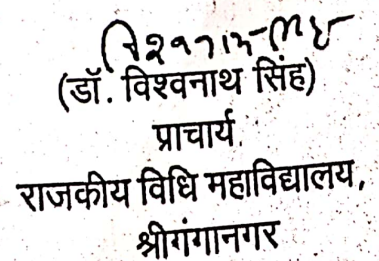 (डॉ. विश्वनाथ सिंह)
प्राचार्य.
राजकीय विधि महाविद्यालय,
श्रीगंगानगर